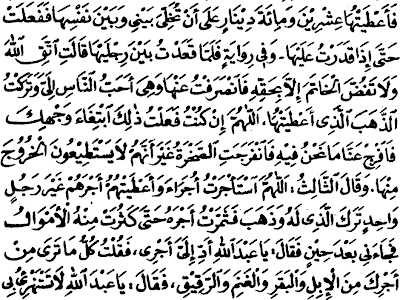 فَأَعْطَيْتُهَا عِشْرِينَ وَمِائَةَ دِينَارٍ عَلَى أَنْ تُخَلِّيَ بَيْنِي وَبَيْنَ نَفْسِهَا فَفَعَلَتْ
حَتَّى إِذَا قَدَرْتُ عَلَيْهَا. وَفِي رِوَايَةٍ فَلَمَّا قَعَدْتُ بَيْنَ رِجْلَيْهَا قَالَتِ اتَّقِ اللهَ
وَلَا تَفُضَّ الْخَاتَمَ إِلَّا بِحَقِّهِ فَانْصَرَفْتُ عَنْهَا وَهِيَ أَحَبُّ النَّاسِ إِلَيَّ وَتَرَكْتُ
الذَّهَبَ الَّذِي أَعْطَيْتُهَا. اللَّهُمَّ إِنْ كُنْتُ فَعَلْتُ ذَلِكَ ابْتِغَاءَ وَجْهِكَ
فَافْرِجْ عَنَّا مَا نَحْنُ فِيهِ فَانْفَرَجَتِ الصَّخْرَةُ غَيْرَ أَنَّهُمْ لَا يَسْتَطِيعُونَ الْخُرُوجَ
مِنْهَا. وَقَالَ الثَّالِثُ: اللَّهُمَّ اسْتَأْجَرْتُ أُجَرَاءَ وَأَعْطَيْتُهُمْ أَجْرَهُمْ غَيْرَ رَجُلٍ
وَاحِدٍ تَرَكَ الَّذِي لَهُ وَذَهَبَ فَثَمَّرْتُ أَجْرَهُ حَتَّى كَثُرَتْ مِنْهُ الْأَمْوَالُ
فَجَاءَنِي بَعْدَ حِينٍ فَقَالَ: يَا عَبْدَ اللهِ أَدِّ إِلَيَّ أَجْرِي، فَقُلْتُ كُلُّ مَا تَرَى مِنْ
أَجْرِكَ مِنَ الْإِبِلِ وَالْبَقَرِ وَالْغَنَمِ وَالرَّقِيقِ، فَقَالَ: يَا عَبْدَ اللهِ لَا تَسْتَهْزِئْ بِي